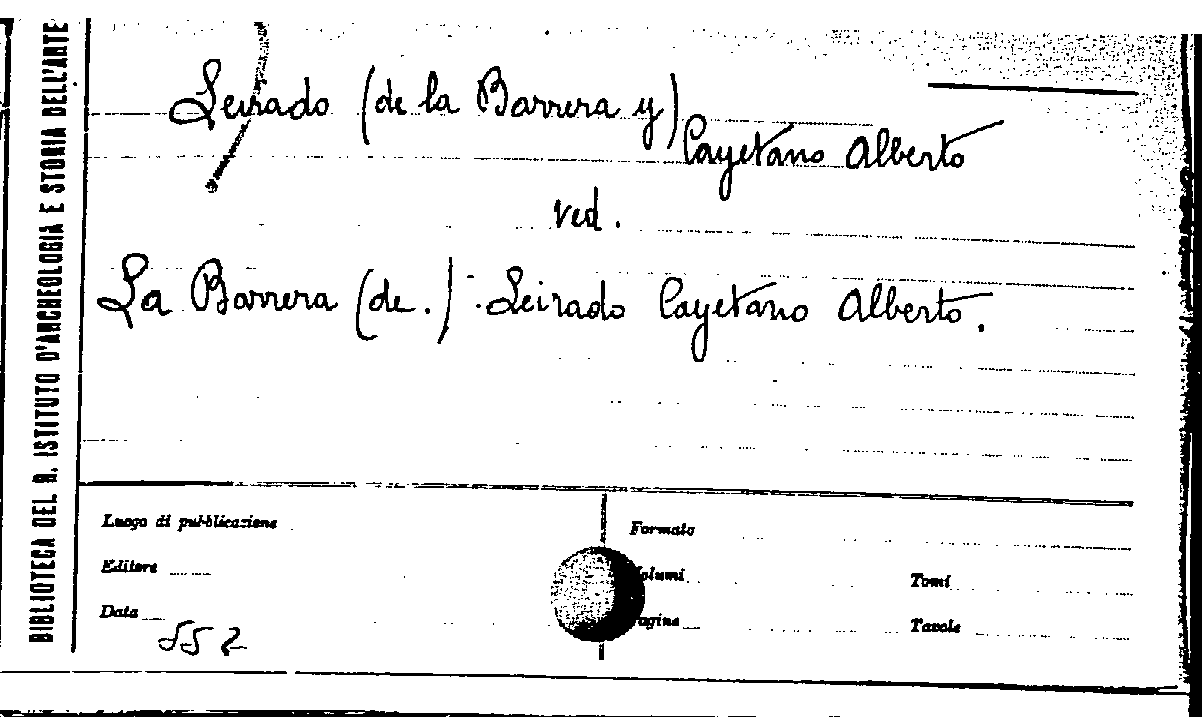 BIBLIOTECA DEL R. ISTITUTO D'ARCHEOLOGIA E STORIA DELL'ARTE
Leirado (de la Barrera y) Cayetano Alberto
ved.
La Barrera (de.) - Leirado Cayetano Alberto.
Luogo di pubblicazione
Editore
Data
552
Formato
Volumi
Tomi
Pagine
Tavole